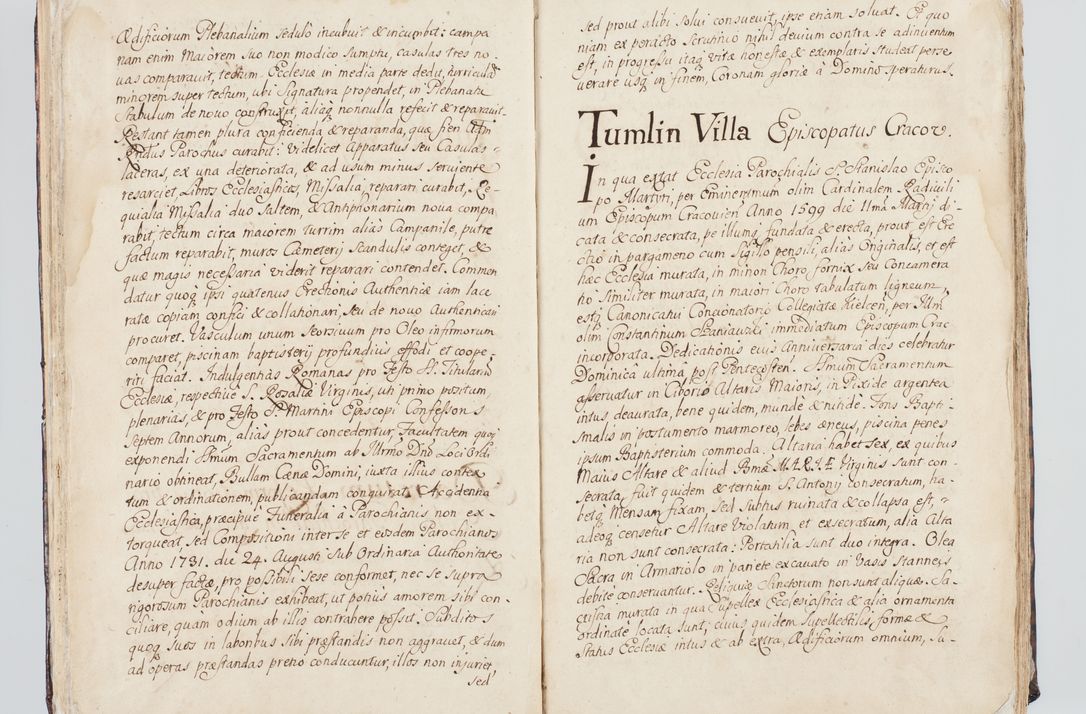 Ædificiorum Plebanalium sedulò incubuit & incumbit: campa
nam enim Maiorem suo non modico sumptu, casulas tres no-
vas comparauit, tectum Ecclesiæ in media parte dedit, turriculã
minorem super tectum, ubi Signatura propendet, in Plebanatu
stabulum de novo construxit, aliaq nonnulla refecit & reparauit.
Restant tamen plura conficienda & reparanda, quæ fieri Adm
Rndus Parochus curabit: Videlicet Apparatus seu Casulas
laceras, ex una deteriorata, & ad usum minus serviente
resarciet, Libros Ecclesiasticos, Missalia, reparari curabit, Re-
quialia Missalia duo saltem, & Antiphonarium nova compa
rabit, tectum circa maiorem turrim alias Campanile, putre
factum reparabit, muros Cæmeterij Scandulis conteget, &
quæ magis necessaria viderit reparari contendet. Commen
datur quoq ipsi quatenus Erectionis Authenticæ iam lace
ratæ copiam confici & collationari, seu de nouo Authenticari
procuret. Vasculum unum seorsivum pro Oleo infirmorum
comparet, piscinam baptisterij profundiùs effodi et coope-
riri faciat. Indulgentias Romanas pro Festo S. Titularis
Ecclesiæ, respectiuè S. Rosaliæ Virginis, uti primo positum,
plenarias, & pro Festo S. Martini Episcopi Confessoris
septem Annorum, alias prout concedentur, Facultatem quoq
exponendi Ssmum Sacramentum ab Illrmo Dnõ Loci Ordi
nario obtineat, Bullam Cænæ Domini, iuxta illius contex
tum & ordinationem, publicandam conquirat. Accidentia
Ecclesiastica, præcipuè Funeralia à Parochianis non ex-
torqueat, sed Compositioni inter se et eosdem Parochianos
Anno 1731. die 24. Augusti sub Ordinaria Authoritate
desuper factæ, pro possibili sese conformet, nec se supra
rigorosum Parochianis exhibeat, ut potius amorem sibi con-
ciliare, quam odium ab illis contrahere possit. Subditos
quoq suos in laboribus sibi præstandis non aggravet, & dum
ad operas præstandas pretio conducuntur, illos non injuriet,
sed
sed prout alibi solvi consuevit, ipse etiam solvat. Et quo
niam ex peracto Scrutinio nihil devium contra se adinventum
est, in progressu itaq vitæ honestæ & exemplaris studeat perse
verare usq in finem, Coronam gloriæ à Domino speraturus.
Tumlin Villa Episcopatus Cracov.
In qua extat Ecclesia Parochialis S. Stanislao Episco
po Martyri, per Eminentissimum olim Cardinalem Radiuili
um Episcopum Cracouien Anno 1599 die 11ma Martij di-
cata & consecrata, per illumq fundata & erecta, prout est Ere
ctio in pargameno cum Sigillo pensili, alias Originalis, et est
hæc Ecclesia murata, in minori Choro fornix seu Concamera
tio similiter murata, in maiori Choro tabulatum ligneum,
estq Canonicatui Concionatorio Collegiatæ Kielcen, per Illm
olim Constantinum Szaniawski immediatum Episcopum Crac
incorporata. Dedicationis eius Anniversaria dies celebratur
Dominicâ ultimâ post Pentecosten. Ssmum Sacramentum
asservatur in Ciborio Altaris Maioris, in Pixide argentea
intus deaurata, bene quidem, mundè & nitidè. Fons Bapti-
smalis in postumento marmoreo, lebes æneus, piscina penes
ipsum Baptisterium commoda. Altaria habet sex, ex quibus
Maius Altare & aliud Bssmæ MARIÆ Virginis sunt con-
secrata, fuit quidem & tertium S. Antonij consecratum, ha-
betq Mensam fixam, sed subtus ruinata & collapsa est,
adeoq censetur Altare violatum, et exsecratum, alia Alta
ria non sunt consecrata: Portatilia sunt duo integra. Olea
Sacra in Armariolo in pariete excavato in Vasis stanneis
debitè conservantur. Reliquiæ Sanctorum non sunt aliquæ. Sa-
cristia murata in qua supellex Ecclesiastica & alia ornamenta
ordinatè locata sunt, cuius quidem Supellectilis formæ &
status Ecclesiæ intus & ab extra, Ædificiorum omnium, Su-